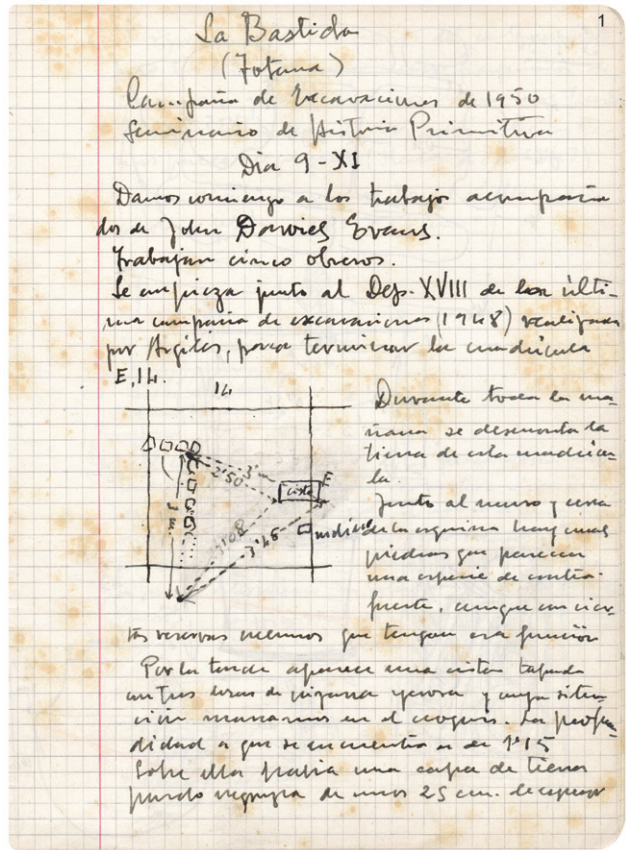 1
La Bastida
(Totana)
Campaña de Excavaciones de 1950
Seminario de Historia Primitiva
Dia 9-XI
Damos comienzo a los trabajos acompaña
dos de John Davies Evans.
Trabajan cinco obreros.
Se empieza junto al Dep. XVIII de la últi-
ma campaña de excavaciones (1948) realizada
por Argilés, para terminar la cuadrícula
E, 14.
14
E
3'
2'50
cista
3'08
3'45
Durante toda la ma-
ñana se desmonta la
tierra de esta cuadrícu-
la.
Junto al muro y cerca
de la esquina hay unas
piedras que parecen
una especie de contra-
fuerte, aunque con cier-
tas reservas creemos que tengan esa función
Por la tarde aparece una cista tapada
con tres losas de pizarra y cuya situa-
ción marcamos en el croquis. La profun-
didad a que se encuentra es de 1'15
Sobre ella había una capa de tierra
pardo negruzca de unos 25 cm. de espesor